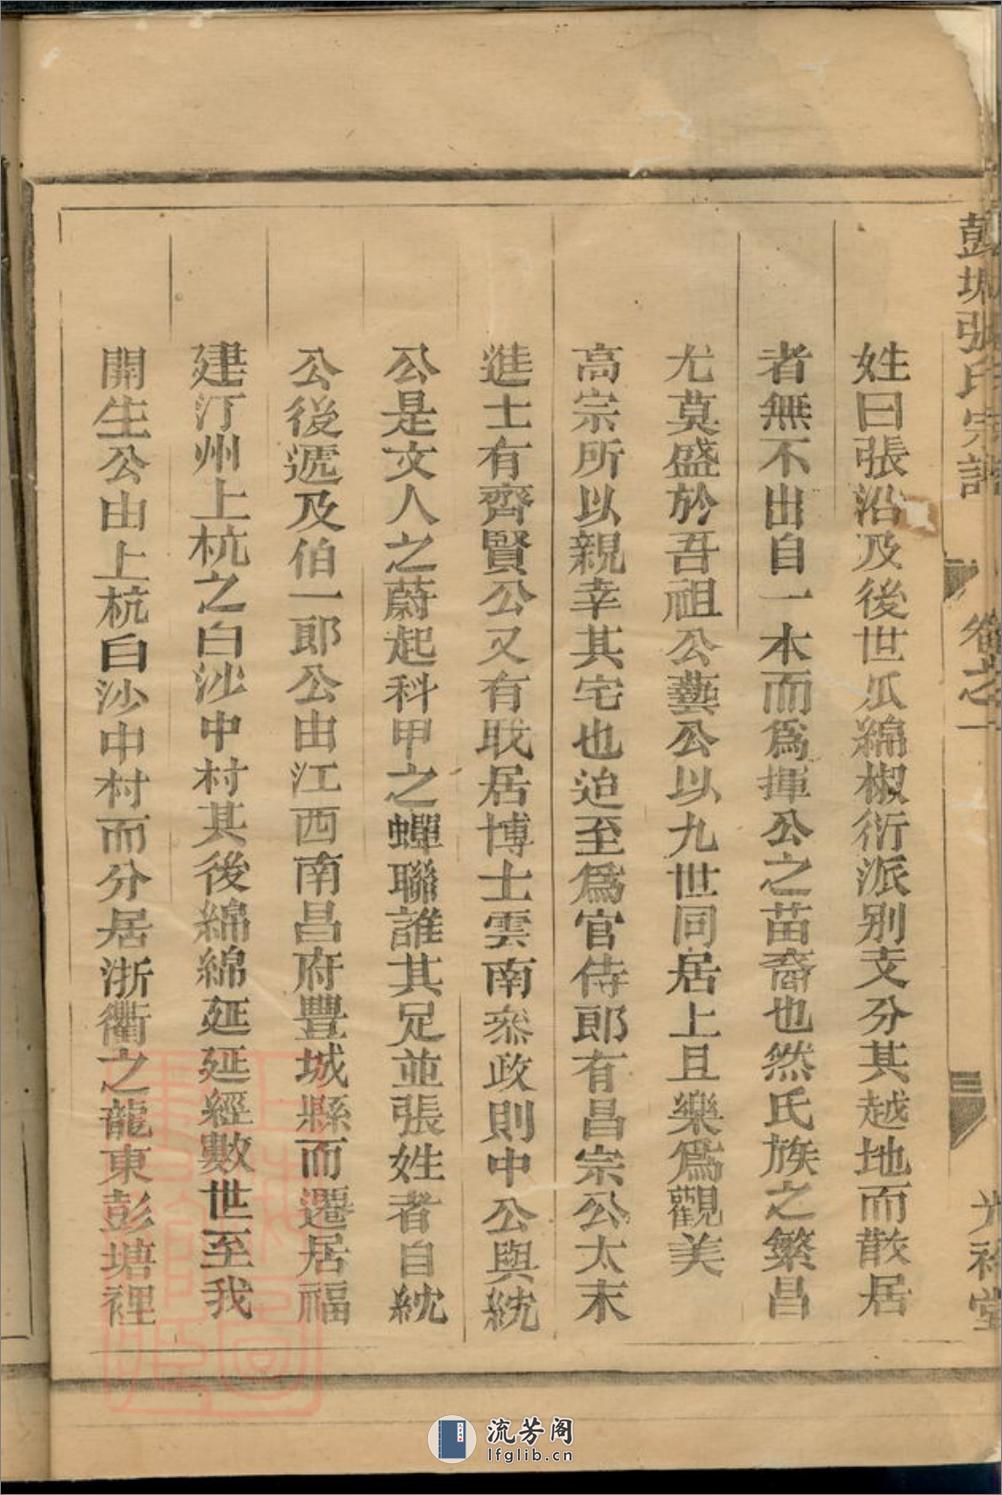 彭城張氏宗譜 卷之一
姓曰張沿及後世瓜綿椒衍派別支分其越地而散居
者無不出自一本而爲揮公之苗裔也然氏族之繁昌
尤莫盛於吾祖公藝公以九世同居上且樂爲觀美
高宗所以親幸其宅也迨至爲官侍郎有昌宗公太末
進士有齊賢公又有戢居博士雲南叅政則中公與統
公是文人之蔚起科甲之蟬聯誰其足並張姓者自統
公後遞及伯一郎公由江西南昌府豐城縣而遷居福
建汀州上杭之白沙中村其後綿綿延延經數世至我
開生公由上杭白沙中村而分居浙衢之龍東彭塘裡
流芳阁
lfglib.cn